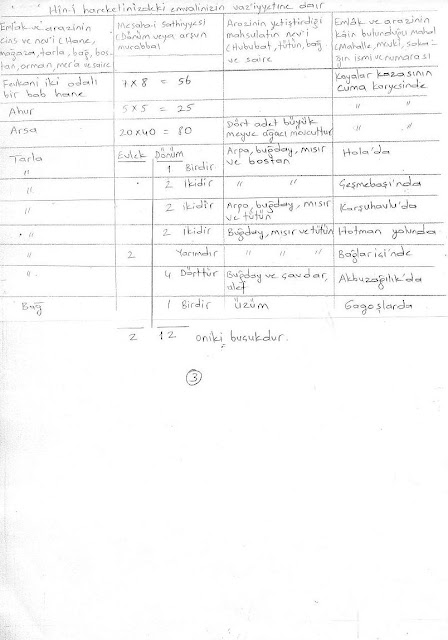 Hin-i hareketinizdeki emvalinizin vaz'iyyetine dair
Emlâk ve arazinin
cins ve nev'i (Hane,
mağaza, tarla, bağ, bos-
tan, orman, mer'a ve saire
Mesaha-i sathiyyesi
(Dönüm veya arşun
murabbaı
Arazinin yetiştirdiği
mahsulatın nev'i
(Hububat, tütün, bağ
ve saire
Emlâk ve arazinin
kâin bulunduğu mahal
(Mahalle, mevki, soka-
ğın ismi ve numarası
Fevkani iki odalı
bir bab hane
7 x 8 = 56
Kayalar kazasının
Cuma karyesinde
Ahur
5 x 5 = 25
" "
Arsa
20 x 40 = 80
Dört adet büyük
meyve ağacı mevcuttur
" "
Tarla
Evlek Dönüm
1 Birdir
Arpa, buğday, mısır
ve bostan
Hola'da
"
2 ikidir
" "
Çeşmebaşı'nda
"
2 ikidir
Arpa, buğday, mısır
ve tütün
Karşuhavlu'da
"
2 ikidir
Buğday, mısır ve tütün
Hotman yolunda
"
2 Yarımdır
" "
Bağlar içi'nde
"
4 Dörttür
Buğday ve çavdar,
ulef
Akbuzağılık'da
Bağ
1 Birdir
üzüm
Gogoşlarda
2 12 oniki buçukdur.
3